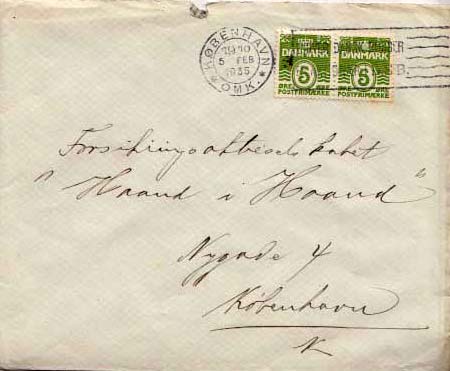 KØBENHAVN
19 10
5 FEB
1935
* OMK. *
DANMARK DANMARK
5 5
ØRE ØRE
POSTFRIMÆRKE POSTFRIMÆRKE
Forsikringsaktieselskabet
"Haand i Haand"
Nygade 4
København
K